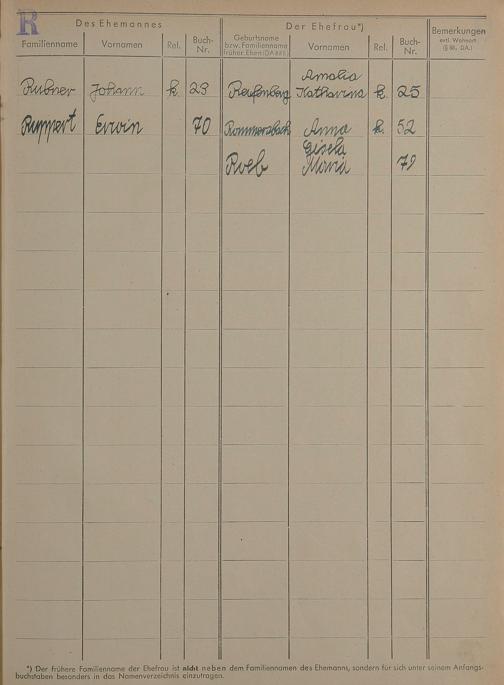 R
Des Ehemannes
Der Ehefrau*)
Bemerkungen
evtl. Wohnort
(§ 88, DA.)
Familienname Vornamen Rel. Buch-Nr. Geburtsname
bzw. Familienname
früher. Ehen Vornamen Rel. Buch-Nr.
Amalia
Rubner Johann k. 23 Reufenberg Katharina k. 25
Ruppert Erwin 70 Rommersbach Anna k. 52
Gisela
Roeb Maria 79
*) Der frühere Familienname der Ehefrau ist nicht neben dem Familiennamen des Ehemanns, sondern für sich unter seinem Anfangs-
buchstaben besonders in das Namenverzeichnis einzutragen.